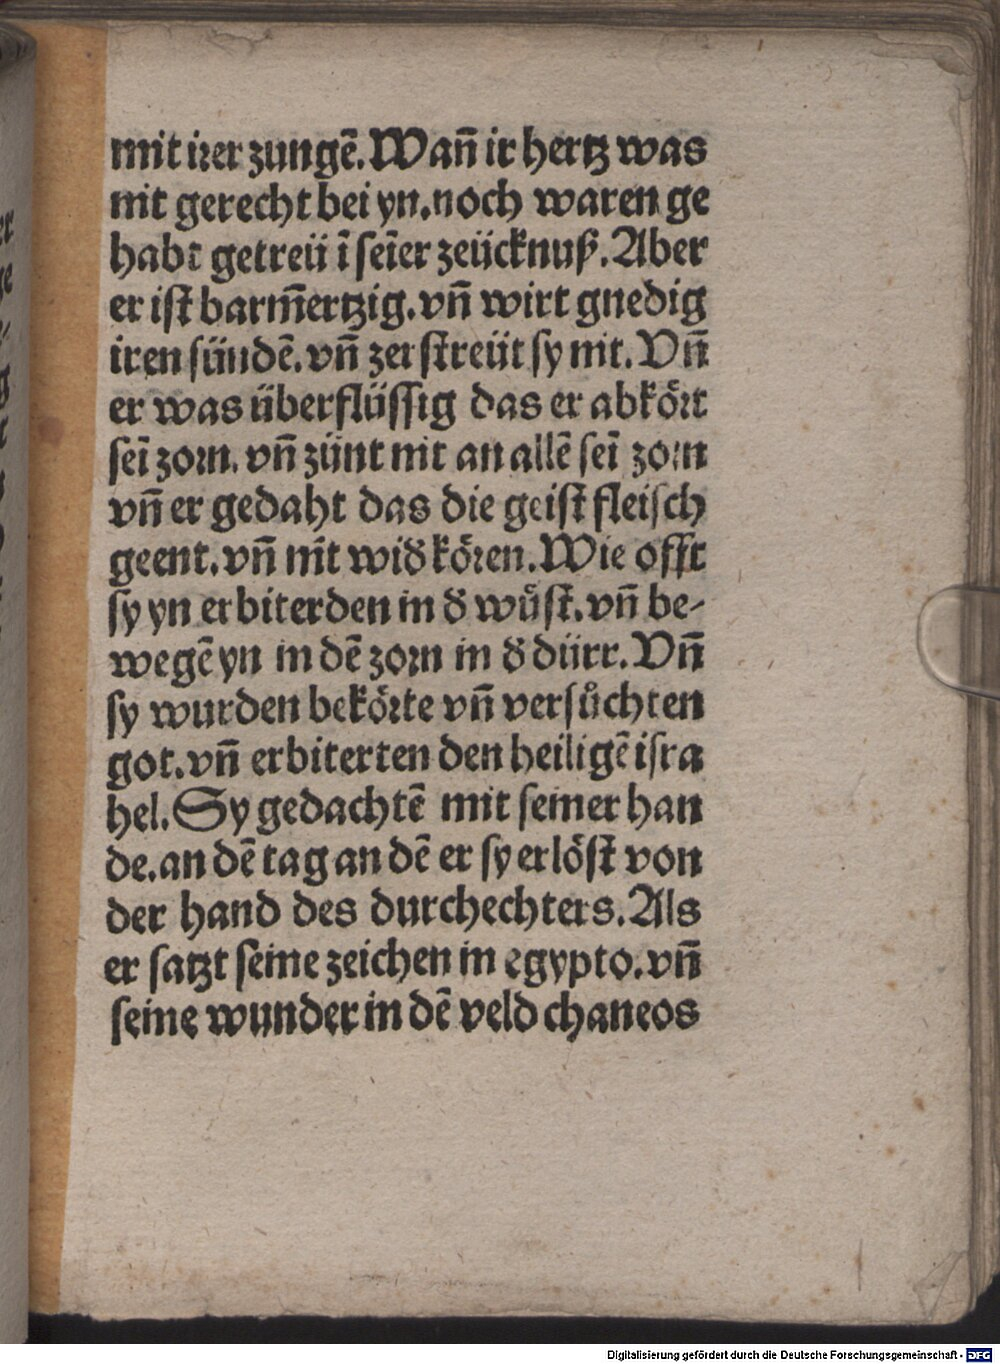 mit irer zungẽ. Wañ ir hertz was
nit gerecht bei yn. noch waren ge
habt getreü ĩ seĩer zeücknuß. Aber
er ist barm̃ertzig. vñ wirt gnedig
iren sündẽ. vñ zerstreüt sy nit. Vñ
er was überflüssig das er abkört
seĩ zorn. vñ zünt nit an allẽ seĩ zorn
vñ er gedaht das die geist fleisch
geent. vñ nit widˀ kören. Wie offt
sy yn erbiterden in dˀ wůst. vñ be-
wegẽ yn in dẽ zorn in dˀ dürr. Vñ
sy wurden bekörte vñ versůchten
got. vñ erbiterten den heiligẽ isra
hel. Sy gedachtẽ mit seiner han
de. an dẽ tag an dẽ er sy erlöst von
der hand des durchechters. Als
er satzt seine zeichen in egypto. vñ
seine wunder in dẽ veld chaneos
Digitalisierung gefördert durch die Deutsche Forschungsgemeinschaft - DFG